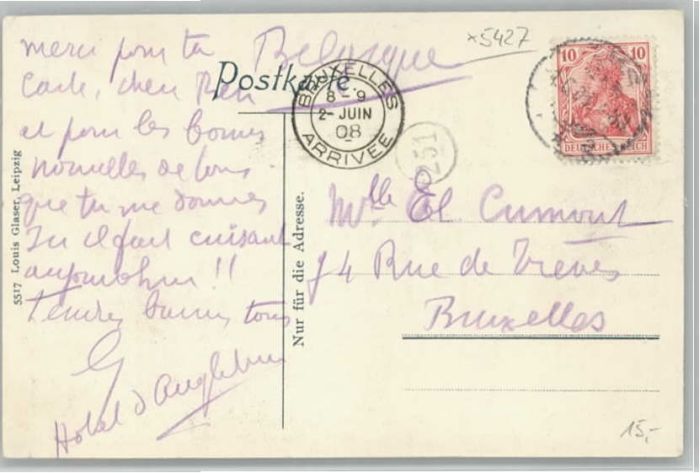 merci pour ta
carte, cher
et pour les bonnes
nouvelles de tous
que tu me donnes
Ici il fait cuisant
aujourd'hui !!
tous
G
Hotel d'Angleterre
5517 Louis Glaser, Leipzig
Belgique
Postkarte
BRUXELLES
8-9
2-JUIN
08
ARRIVÉE
251
x5427
10 10
DEUTSCHES REICH
Nur für die Adresse.
Mlle El Cumont
94 Rue de Trèves
Bruxelles
15,-